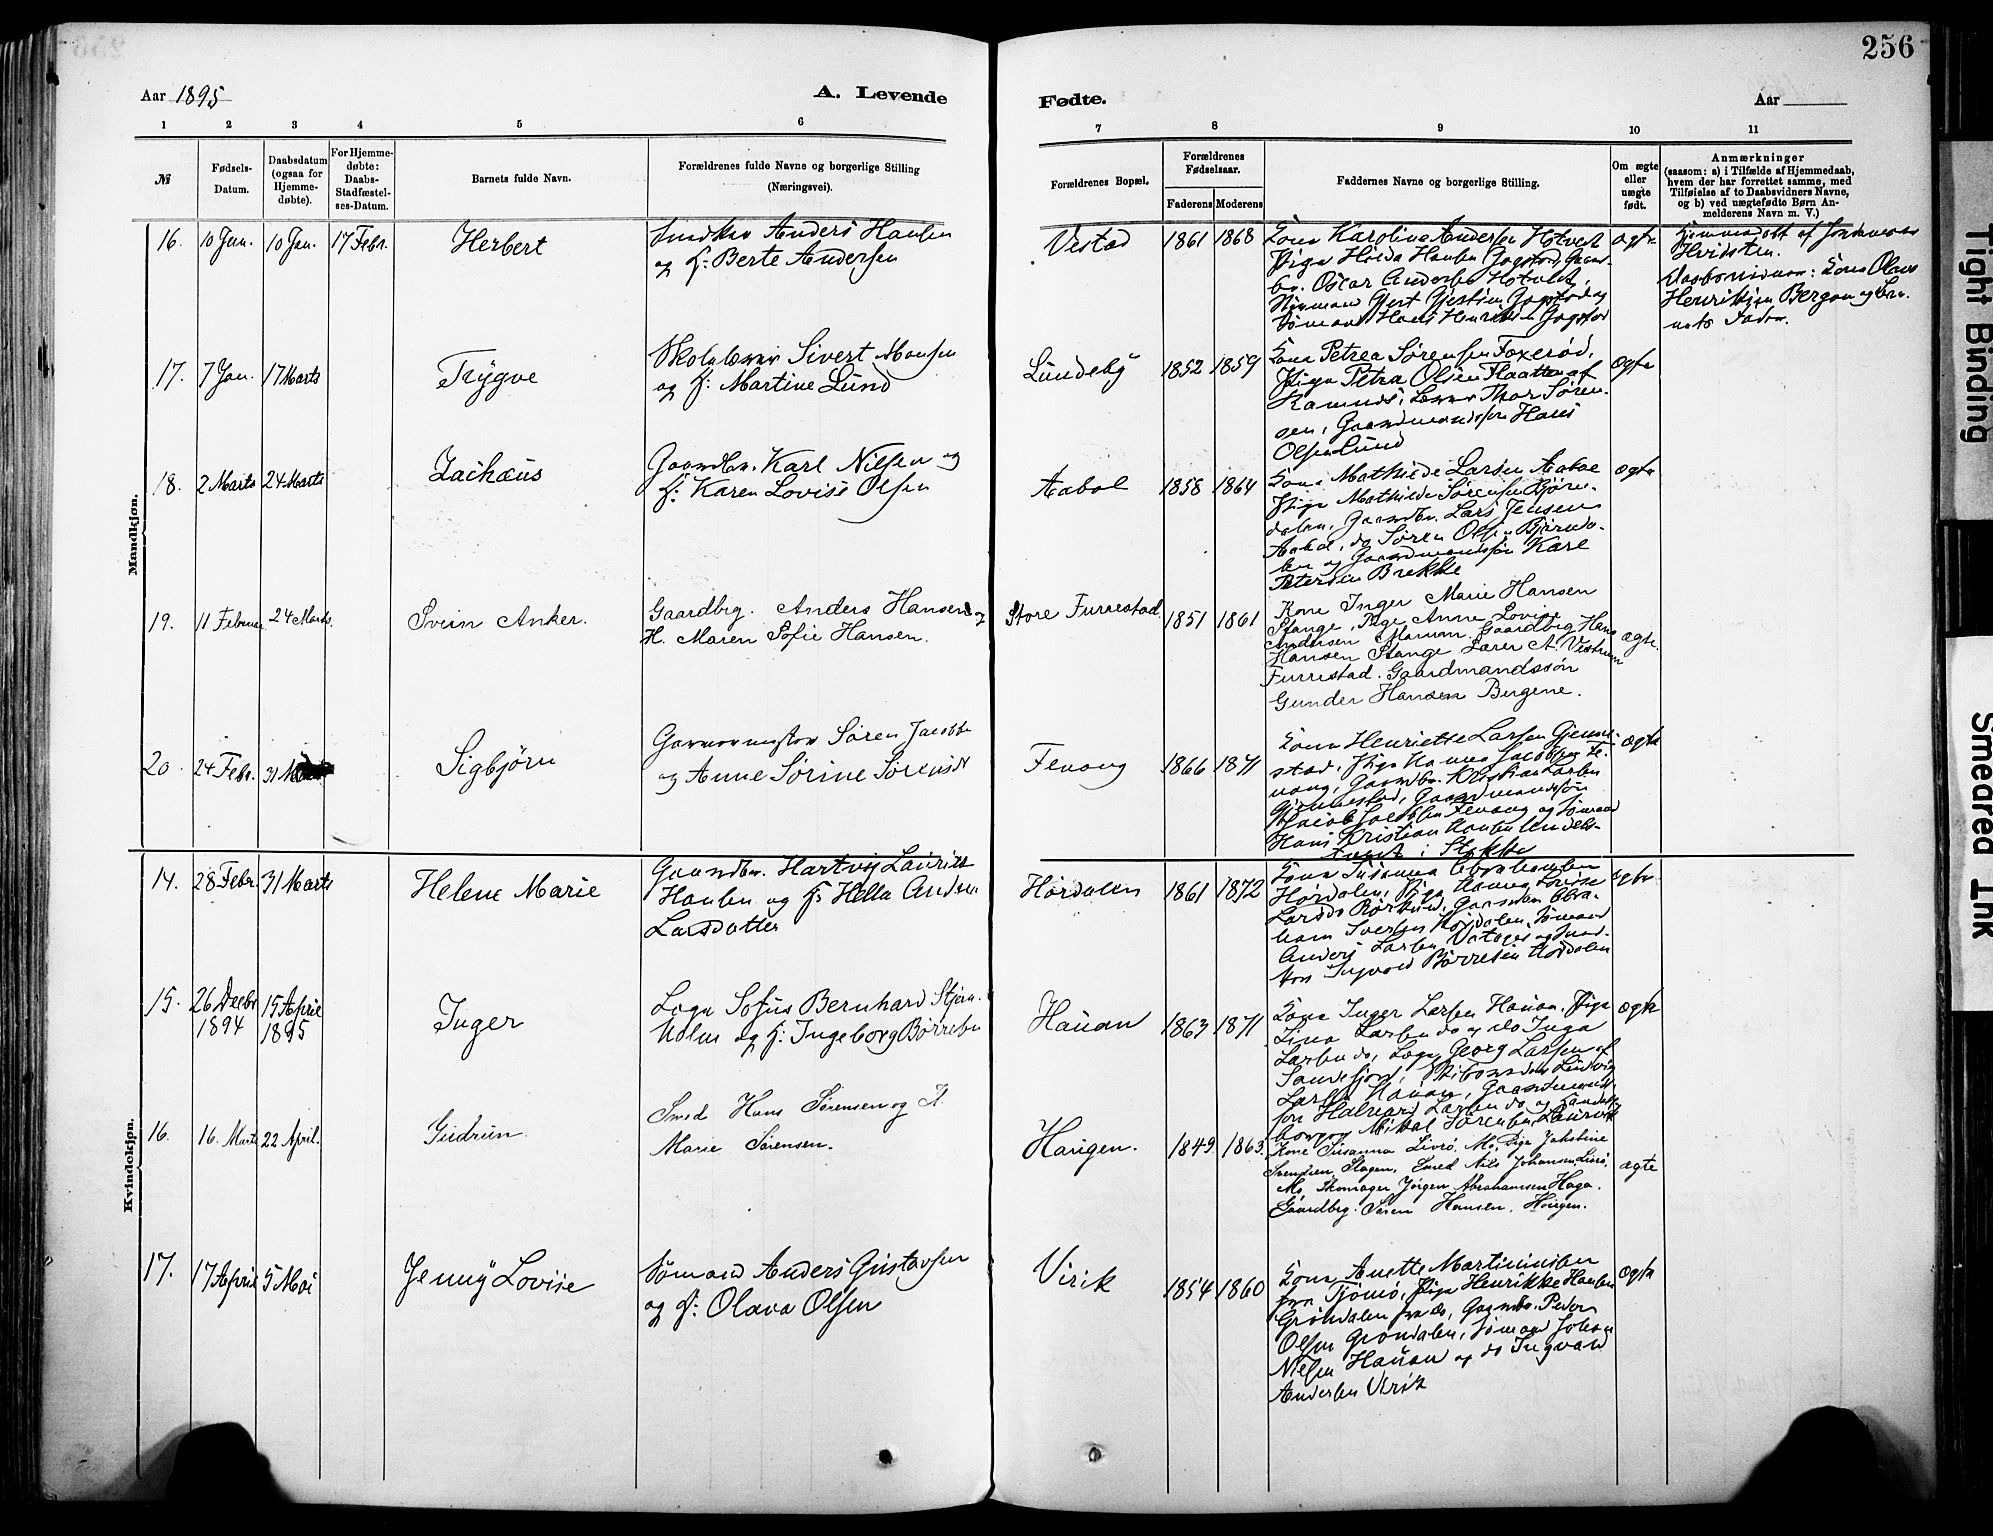 256
Aar 1895
A. Levende
Fødte.
Aar
1 2 3 4 5 6 7 8 9 10 11
№
Fødsels-Datum.
Daabsdatum (ogsaa for Hjemme-døbte).
For Hjemme-døbte: Daabs-Stadfæstel-ses-Datum.
Barnets fulde Navn.
Forældrenes fulde Navne og borgerlige Stilling (Næringsvei).
Forældrenes Bopæl.
Forældrenes Fødselsaar.
Faderens Moderens
Faddernes Navne og borgerlige Stilling.
Om ægte eller uægte født.
Anmærkninger
(saasom: a) i Tilfælde af Hjemmedaab,
hvem der har forrettet samme, med
Tilføielse af to Daabsvidners Navne,
og b) ved uægtefødte Børn An-
melderens Navn m. V.)
Mandkjøn.
16. 10 Jan. 10 Jan. 17 Febr. Herbert
Snedker Anders Hansen
og H: Berte Andersen
Vestad 1861 1868
Kone Karoline Andersen Hotvedt
Pige Hilda Hansen Gogstad, Gaard-
br. Oscar Andersen Hotvedt,
Sømand Hans Henriksen Gogstad
ægte
Hjemmedøbt af
Hvidsten.
Daabsvidner: Kone Olava
Henriksen Bergan og Bar-
nets Fader.
17. 7 Jan. 17 Marts Trygve
Skolelærer Sivert Monsen
og H: Martine Lund
Lundeby 1852 1859
Kone Petrea Sørensen Foxerød,
Pige Petra Olsen Flaatten af
Ramnes, Lærer Thor Søren-
sen, Gaardmandssøn Hans
Olsen Lund
ægte
18. 2 Marts 24 Marts Zachæus
Gaardbr. Karl Nilsen og
H: Karen Lovise Olsen
Aabol 1858 1864
Kone Mathilde Larsen Aabol
Pige Mathilde Sørensen Bjørn-
dalen, Gaardbr. Lars Jensen
Aabol, do Søren Olsen Bjørnda-
len og Gaardmandssøn Karl
Petersen Brekke
ægte
19. 11 Februar 24 Marts. Svein Anker.
Gaardbrg. Anders Hansen og
H. Maren Sofie Hansen.
Store Furrestad. 1851 1861
Kone Inger Marie Hansen
Stange, Pige Anne Lovise
Andersen Marum. Gaardbrg. Hans
Hansen Stange Lærer A. Vestrum
Furrestad. Gaardmandssøn
Gunder Hansen Bergene.
ægte.
20. 24 Febr. 31 Sigbjørn
Garvermester Søren Jacobsen
og Anne Sørine Sørensdt
Fevang 1866 1871
Kone Henriette Larsen Gjenne-
stad, Pige Hanna Jacobsen Fe-
vang, Gaardbr. Kristian Larsen
Gjennestad, Gaardmandssøn
Jacob Jacobsen Fevang og Sømand
Hans Kristian Hansen
i Stokke
ægte
Kvindekjøn.
14. 28 Febr. 31 Marts Helene Marie
Gaardbr. Hartvig Lauritz
Hansen og H: Hella Andrea
Larsdatter
Hørdalen 1861 1872
Kone Susanna Abrahamsen
Hørdalen, Pige Hanna Lovise
Abra-
ham Iversen Hørdalen, Sømand
Anders Larsen og Sned-
ker Ingvald Børresen Hørdalen
ægte
15. 26 Decbr 1894 15 April 1895 Inger
Logn Sofus Bernhard Stjern-
holm og H: Ingeborg Børresen
Hauan 1863 1871
Kone Inger Larsen Hauan. Pige
Lina Larsen do og do Inga
Larsen do, Logn Georg Larsen af
Sandefjord, Ludvig
Larsen Hauan, Gaardmands-
søn Halvard Larsen do og
Mikal Sørensen
ægte
16. 16. Marts 22 April. Gudrun.
Smed Hans Sørensen og H.
Marie Sørensen.
Haugen. 1849 1863.
Kone Susanna Livrø, Mø, Pige Jakobine
Svendsen Slagen. Smed Nils Johansen Livrø,
Mø, Skomager Jørgen Abrahamsen Haga.
Gaardbrg. Søren Hansen, Haugen.
ægte
17. 17 April 5 Mai Jenny Lovise
Sømand Anders Gustavsen
og H: Olava Olsen
Virik 1854 1860
Kone Anette Martiniusen
fra Tjømø, Pige Henrikke Hansen
Grøndalen fra do, Gaardbr. Peder
Olsen Grøndalen, Sømand Johan
Nielsen Hauan og do Ingvald
Andersen Virik
ægte
Tight Binding
Smeared Ink